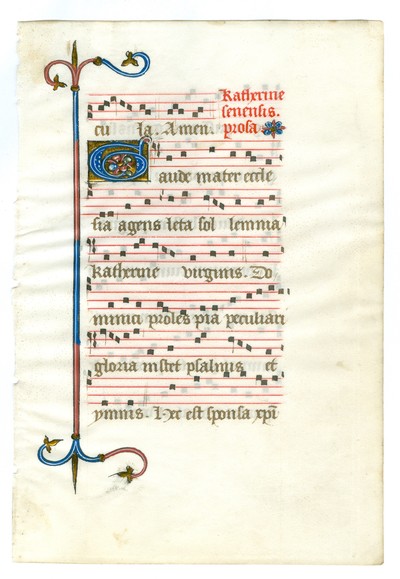 Katherine
senensis.
cu la. Amen. prosa
Gaude mater eccle
sia agens leta sol lemnia
katherine virginis. Do
minici proles pia peculiari
gloria instet psalmis et
ymnis. Hec est sponsa xpi